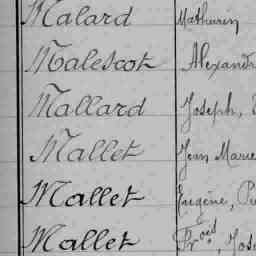 Malard Mathurin
Malescot Alexandr
Mallard Joseph,
Mallet Jean Marie
Mallet Eugène,
Mallet Frçois, Jose